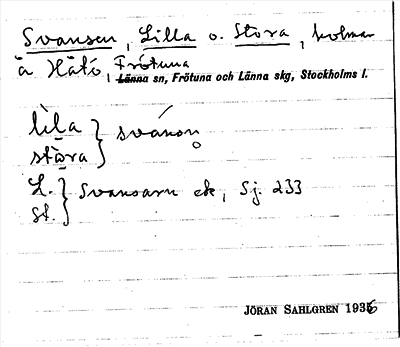 Svansen, Lilla o. Stora, holmar
å Hätö, Frötuna
Länna sn, Frötuna och Länna skg, Stockholms l.
lìla } svánǫn
stòra
L. } Svansarn ek, Sj. 233
St.
JÖRAN SAHLGREN 1936